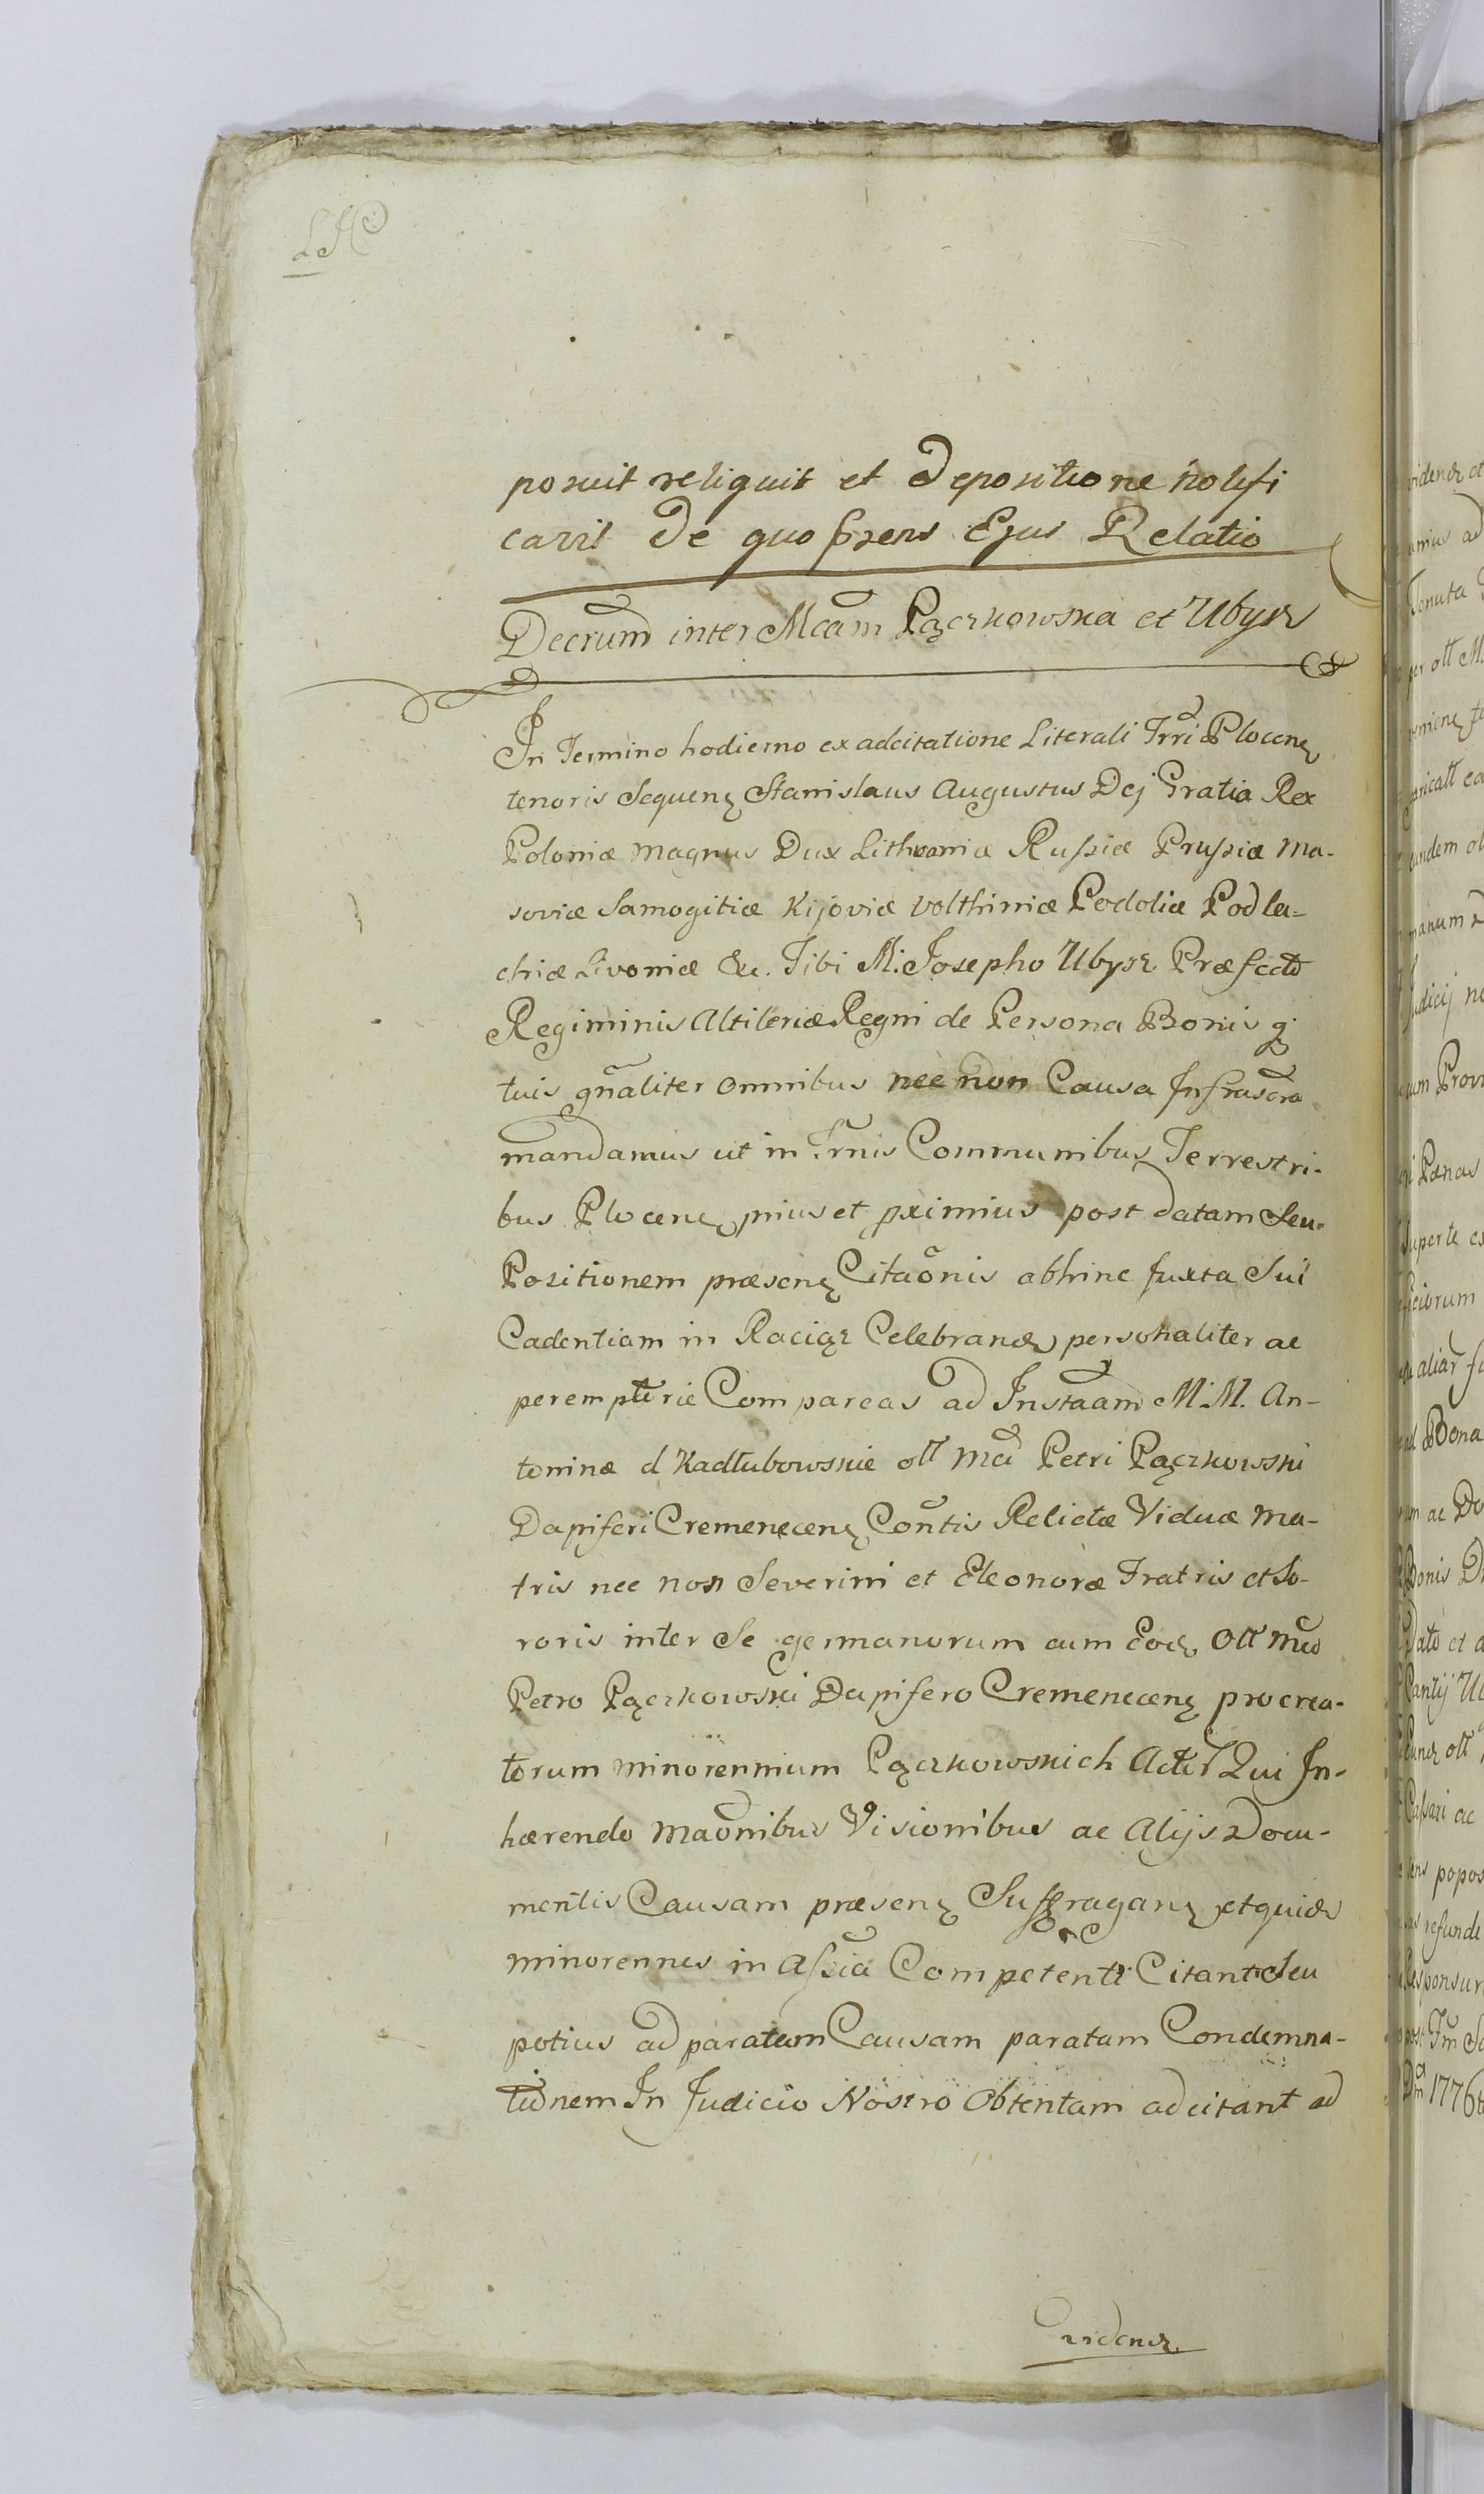 posuit reliquit et Depositione notifi
cavit De quo Przens Ejus Relatio
Decrum inter Mcam Pączkowska et Ubysz
In Termino hodierno ex adcitatione Literali Trri Plocenȩ
tenoris Sequenȩ Stanislaus Augustus Dej Gratia Rex
Poloniæ Magnus Dux Lithvaniæ Russiæ Prussiæ Ma-
soviæ Samogitiæ Kijoviæ Volthiniæ Podoliæ Podla-
chiæ Livoniæ &c. Tibi M. Josepho Ubysz Præfecto
Regiminis Altileriæ Regni de Persona Bonis q
tuis gnaliter omnibus nec non Causa Infrascra
mandamus ut in Trnis Communibus Terrestri-
bus Plocenȩ pius et pximius post datam Seu
Positionem præsenȩ Citaonis abhinc Juxta Sui
Cadentiam in Raciąz Celebrand personaliter ac
peremptorie Compareas ad Instaam M. M. An-
toninæ d Kadłubowskie olt Mci Petri Pączkowski
Dapiferi Cremenecenȩ Contis Relictæ Viduæ Ma-
tris nec non Severini et Eleonoræ Fratris et So-
roris inter Se germanorum cum Eodȩ Olt Mco
Petro Pączkowski Dapifero Cremenecenȩ procrea-
torum minorennium Pączkowskich Actor Qui In-
hærendo Maonibus Visionibus ac Alijs Docu-
mentis Causam præsenȩ Suffraganȩ et quid
minorennes in Assia Competenti Citant Seu
potius ad paratam Causam paratam Condemna-
tionem In Judicio Nostro Obtentam adcitant ad
Evidend